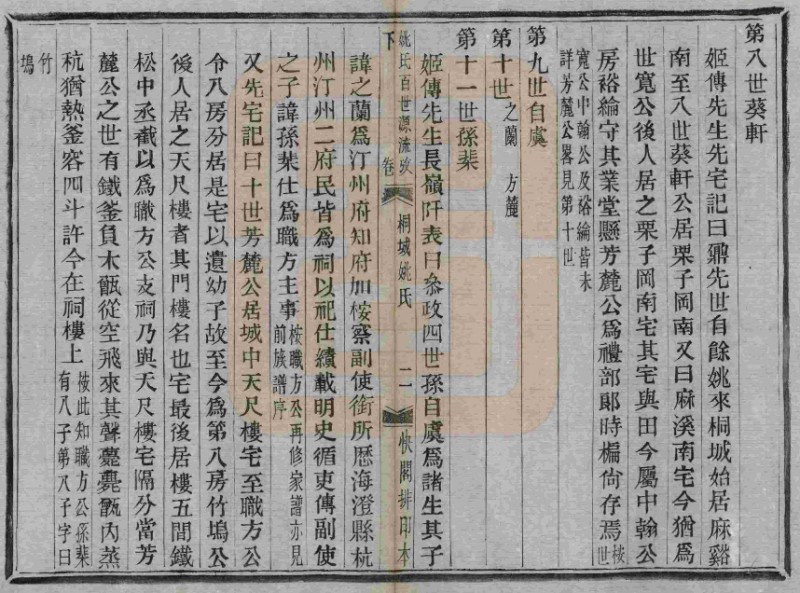 第八世葵軒
姬傳先生先宅記曰鼐先世自餘姚來桐城始居麻谿
南至八世葵軒公居栗子岡南又曰麻溪南宅今猶為
世寬公後人居之栗子岡南宅其宅與田今屬中翰公
房裕綸守其業堂懸芳麓公為禮部郎時楄尙存焉按世
寬公中翰公及裕綸皆未
詳芳麓公畧見第十世
第九世自虞
第十世之蘭 方麓
第十一世孫棐
姬傳先生長嶺阡表曰叅政四世孫自虞為諸生其子
姚氏百世源流攷 卷下 桐城姚氏 二 快閣排印本
諱之蘭為汀州府知府加桉察副使銜所歷海澄縣杭
州汀州二府民皆為祠以祀仕績載明史循吏傳副使
之子諱孫棐仕為職方主事桉職方公再修家譜亦見
前族譜序
又先宅記曰十世芳麓公居城中天尺樓宅至職方公
令八房分居是宅以遺幼子故至今為第八房竹塢公
後人居之天尺樓者其門樓名也宅最後居樓五間鐵
松中丞截以為職方公支祠乃與天尺樓宅隔分當芳
麓公之世有鐵釜負木甑從空飛來其聲薨薨甑內蒸
秔猶熱釜容四斗許今在祠樓上桉此知職方公孫棐
有八子第八子字曰
竹塢